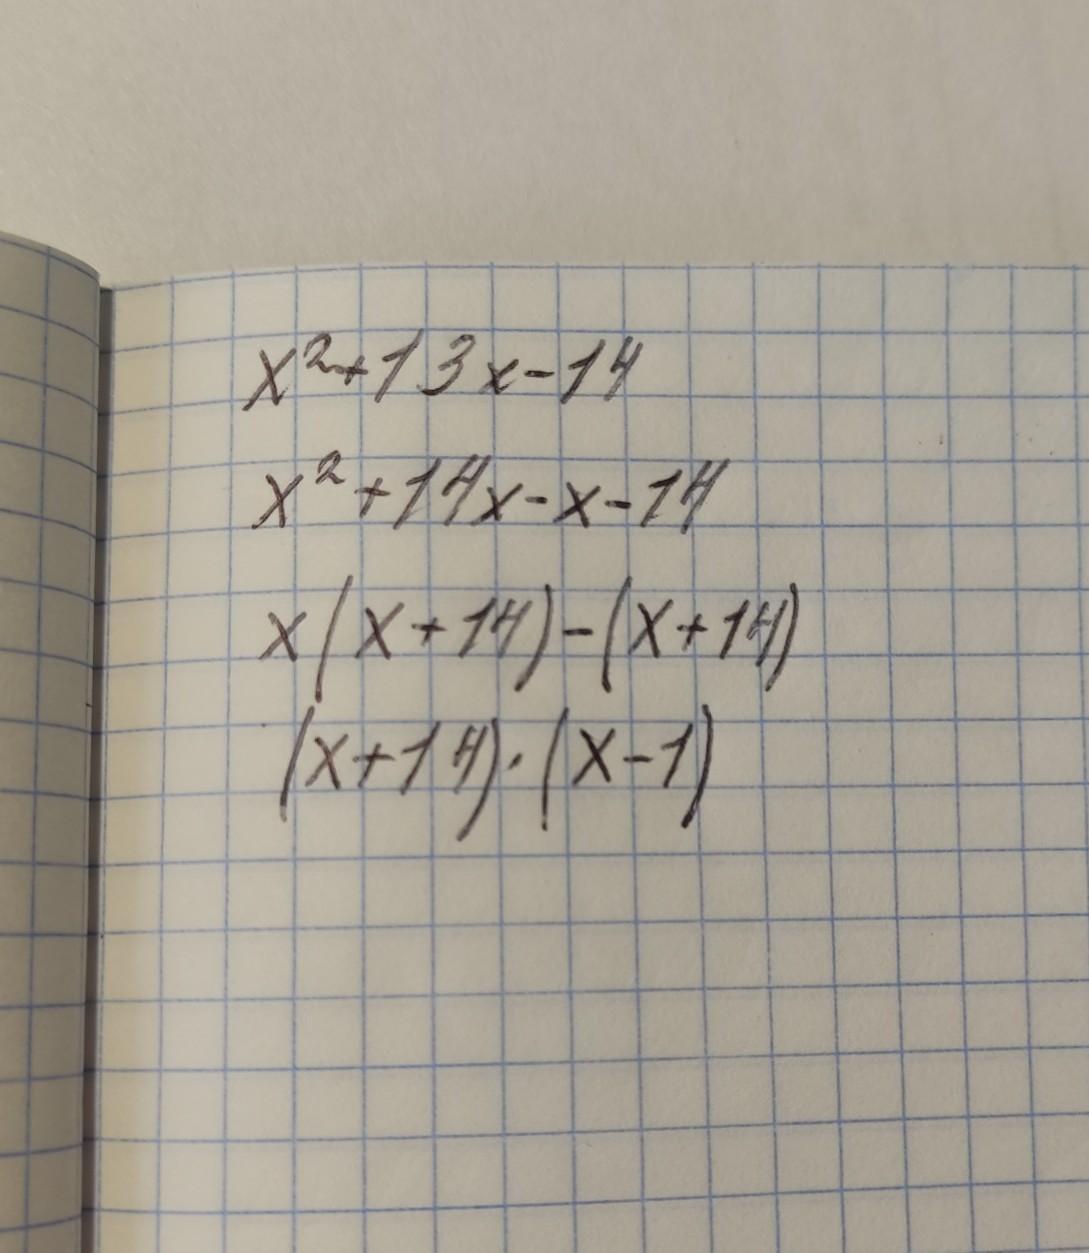 x²+13x-14
x²+14x-x-14
x(x+14)-(x+14)
(x+14)·(x-1)